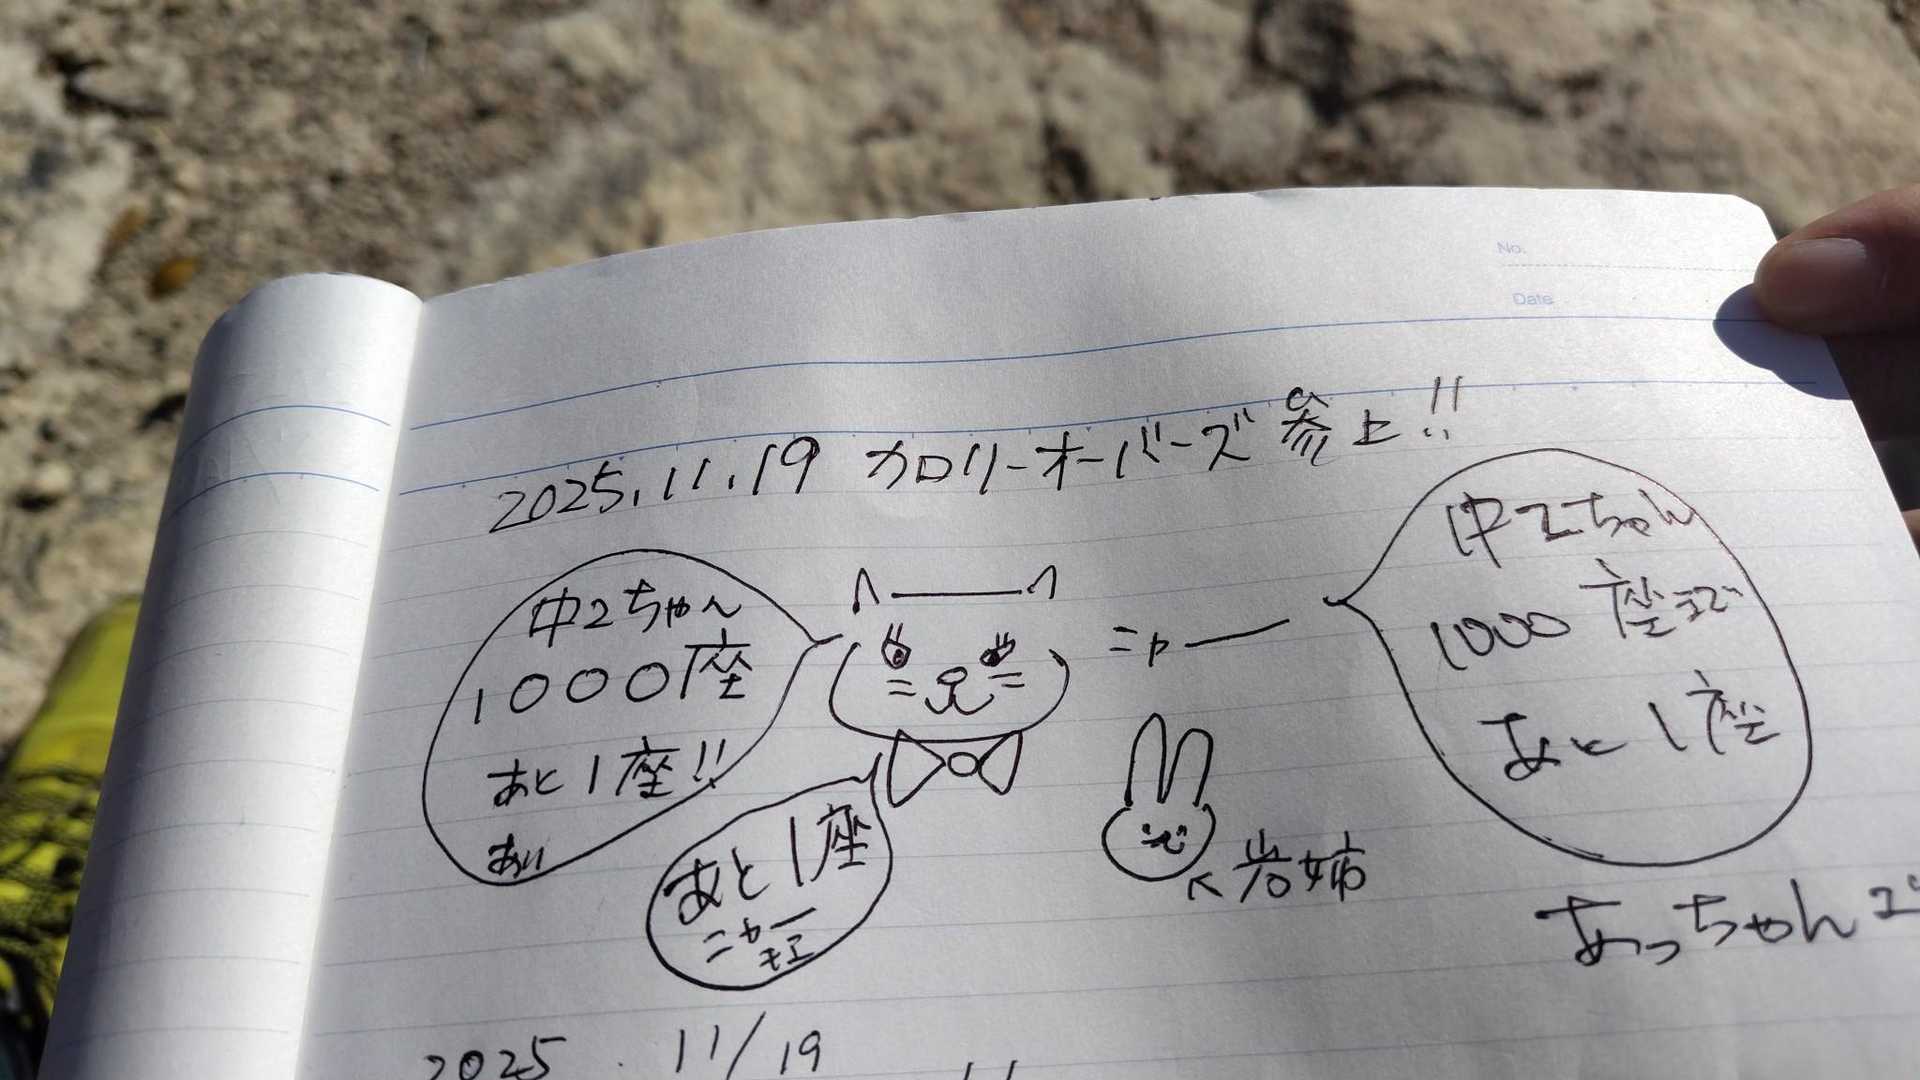 No.
Date
2025.11.19 カロリーオーバーズ参上!!
中2ちゃん
1000座
あと1座!!
あい
ニャー
中2ちゃん
1000座まで
あと1座
あと1座
ニャー
岩姉
あっちゃん
2025 . 11/19